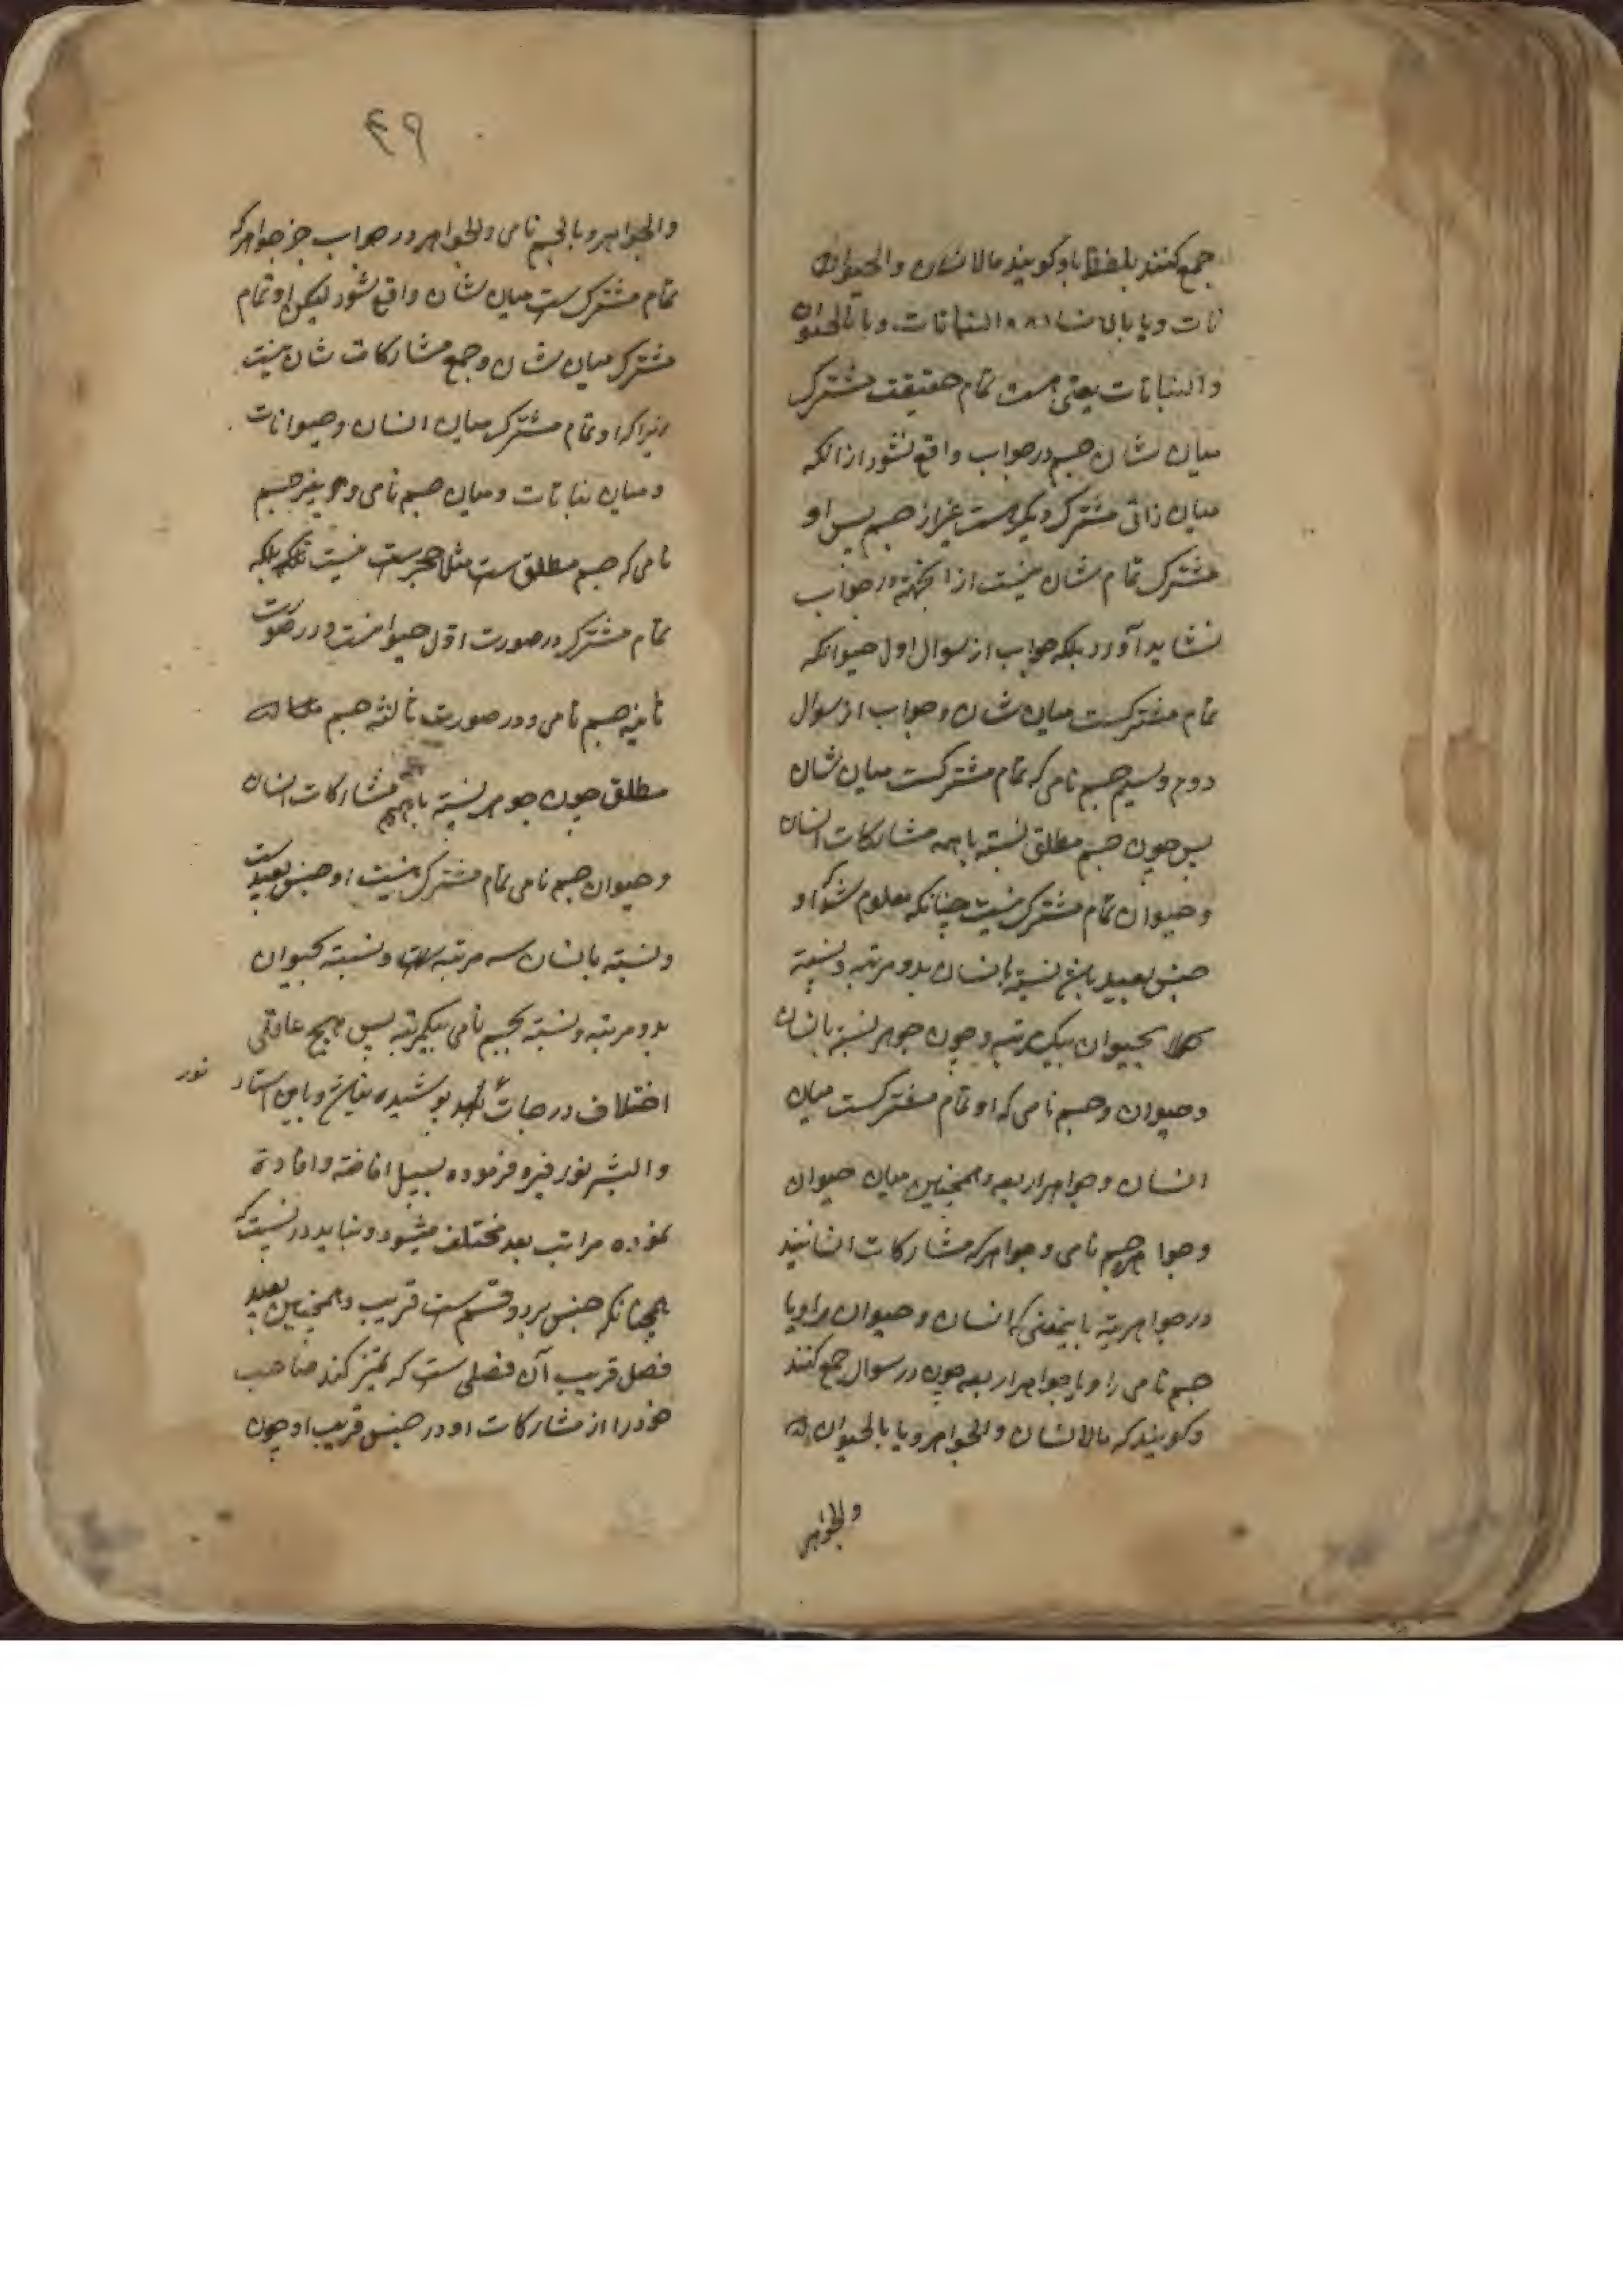 جمع کنند بلفظ باو کویند مالانسان والحیوان
نات ویا بالانسان النباتات ویا بالحیوان
والنباتات یعنی هست تمام حقیقت مشترک
میان شان جسم در جواب واقع نشود از انکه
میان ذاتی مشترک دیکر است غیر از جسم پس او
مشترک تمام شان نیست از اینجهة در جواب
نشاید آورد بلکه جواب از سوال اول حیوانکه
تمام مشترکست میان شان وجواب از سوال
دوم وسیم جسم نامی که تمام مشترکست میان شان
پس چون جسم مطلق نسبته باهمه مشارکات انسان
وحیوان تمام مشترک نیست چنانکه معلوم شد او
جنس بعید باشد نسبته بانسان بدو مرتبه ونسبته
بحیوان بیک مرتبه وچون جوهر نسبته بانسان
وحیوان وجسم نامی که او تمام مشترکست میان
انسان وجواهر اربعه وهمچنین میان حیوان
وجواهر جسم نامی وجواهر که مشارکات انسانیند
در جواهریته باینمعنی که انسان وحیوان را ویا
جسم نامی را ویا جواهر اربعه چون در سوال جمع کنند
وکویند که مالانسان والجواهر ویا بالحیوان
والجواهر
۴۹
والجواهر ویا بالجسم نامی والجواهر در جواب جز جواهر که
تمام مشترک ست میان شان واقع نشود لیکن او تمام
مشترک میان شان وجمع مشارکات شان نیست
زیرا که او تمام مشترک میان انسان وحیوانات
ومیان نباتات ومیان جسم نامی وغیر جسم
نامی که جسم مطلق ست مثلا حجر ست نیست بلکه
تمام مشترک در صورت اول حیوانست ودر صورت
ثانیه جسم نامی ودر صورت ثالثه جسم
مطلق چون جوهر نسبته باهمه مشارکات انسان
وحیوان جسم نامی تمام مشترک نیست او جنس بعید ست
ونسبته بانسان سه مرتبه ست ونسبته بحیوان
بدو مرتبه ونسبته بجسم نامی بیکمرتبه پس هیچ عاقلی
اختلاف درجات بعد پوشیده نباشد وباین استاد
نور
والبشر نور قبره فرموده بسبیل افاضه وافادة
نموده مراتب بعد مختلف میشود ونباید دانست که
همچنانکه جنس بر دو قسم ست قریب وهمچنین بعید
فصل قریب آن فصلی ست که تمیز کند صاحب
خود را از مشارکات او در جنس قریب او چون